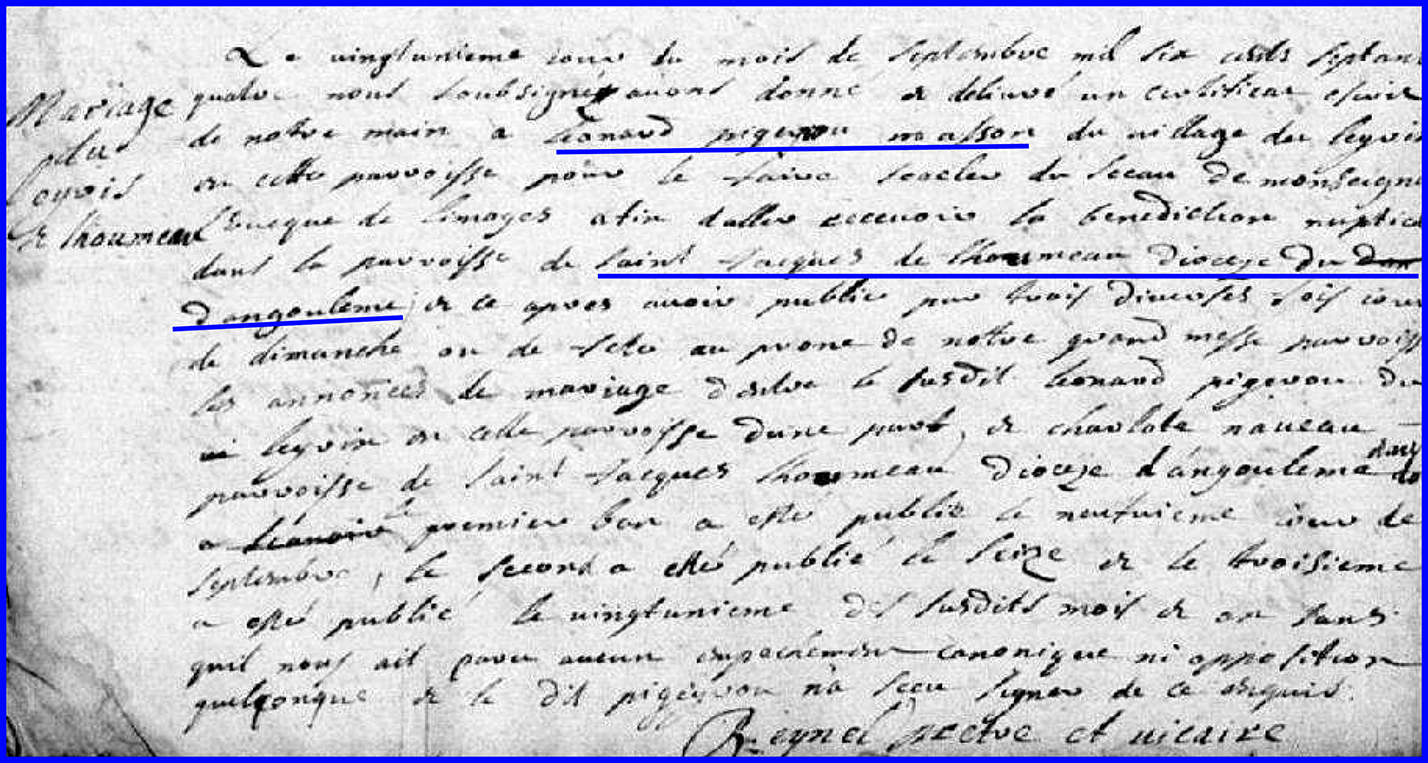 Le vingtunieme jour du mois de septembre mil six cents septan
Mariage
quatre nous soubsigné avons donné et delivré un certificat escrit
de notre main a Leonard pigeyrou masson du village du leyri
petit
leyris
en cette parroisse pour le faire sceeler du sceau de monseigne
et lhoumeau
l'evecque de limoges afin daller recevoir la benediction nuptia
dans la parroisse de saint Jacques de lhoumeau dioceze du
d'angouleme et ce apres avoir publié par trois diverses fois jour
de dimanche ou de feste au prone de notre grand messe parroiss
les annonces de mariage d'entre le susdit leonard pigeyrou du
leyrix en cette parroisse dune part, et charlote naveau
parroisse de saint Jacques lhoumeau dioceze d'angouleme dans
le premier ban a esté publié le neufvieme jour de
septembre, le second a esté publié le seize et le troisieme
a esté publié le vingtunieme des susdits mois et an sans
quil nous ait paru aucun empechement canonique ni opposition
quelconque et le dit pigeyrou na sceu signer de ce enquis.
Reynel pretre et vicaire